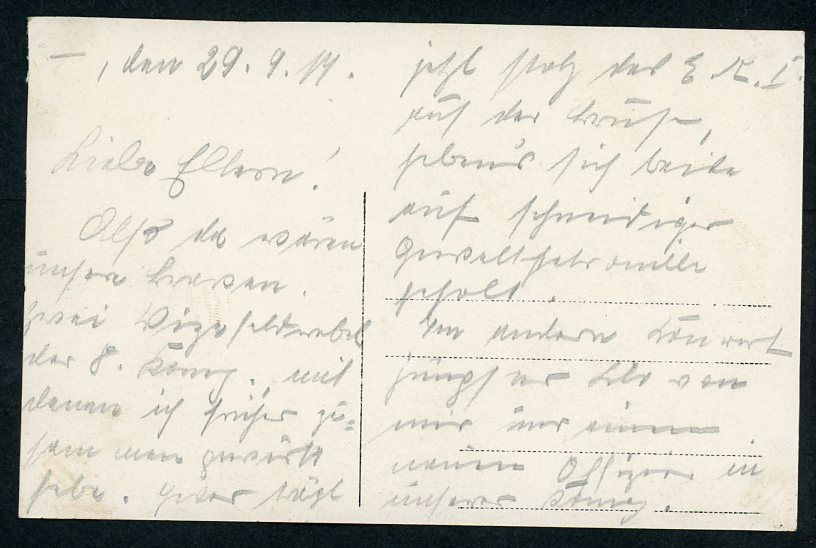 –, den 29.9.17.
Liebe Eltern!
Also da wären
unsere braven
zwei Vizefeldwebel
der 8. Komp., mit
denen ich früher zu=
sammen gewirkt
habe. Jeder trägt
jetzt stolz das E.K.I.
auf der Brust,
haben's sich beide
auf schneidiger
Gewaltpatrouille
geholt.
Im andern Kouvert
von
mir und einem
neuen Offizier in
unserer Komp.